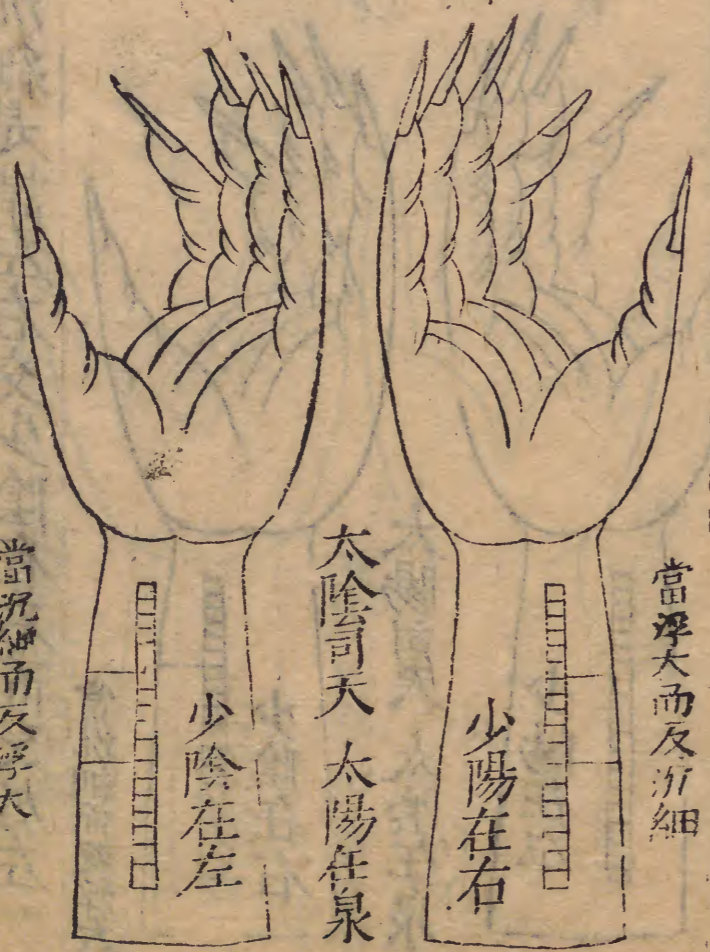 當浮大而反沉細
少陽在右
太陰司天 太陽在泉
少陰在左
當沉細而反浮大